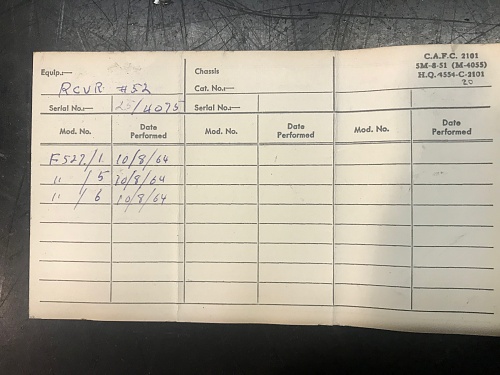 C.A.F.C. 2101
5M-8-51 (M-4055)
H.Q. 4554-C-2101
20
Equip.:— RCVR #52
Chassis
Cat. No.:—
Serial No:— /4075
Serial No.:—
Mod. No. Date Performed Mod. No. Date Performed Mod. No. Date Performed
F527/1 10/8/64
" / 5 10/8/64
" / 6 10/8/64